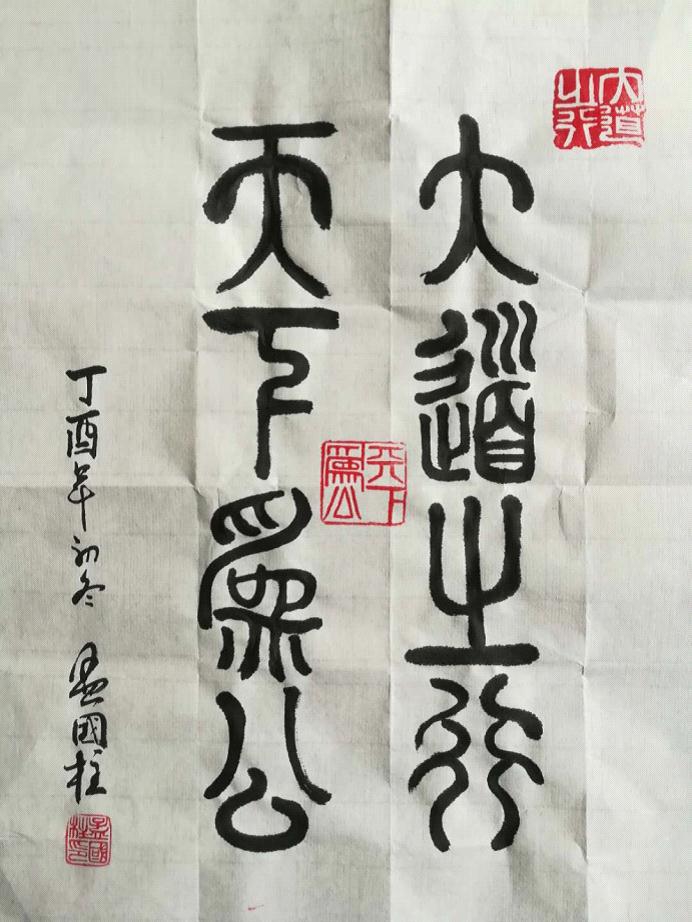 大道之行
天下為公
丁酉年初冬 孟國柱
大道之行
天下為公
孟國柱印